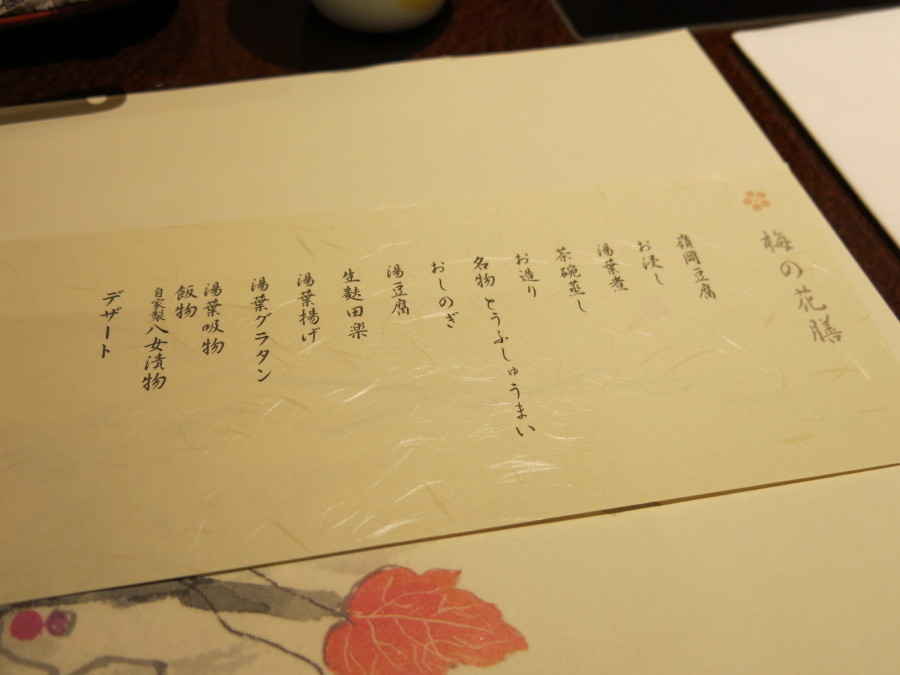 梅の花膳
嶺岡豆腐
お浸し
湯葉煮
茶碗蒸し
お造り
名物 とうふしゅうまい
おしのぎ
湯豆腐
生麩田楽
湯葉揚げ
湯葉グラタン
湯葉吸物
飯物
自家製八女漬物
デザート